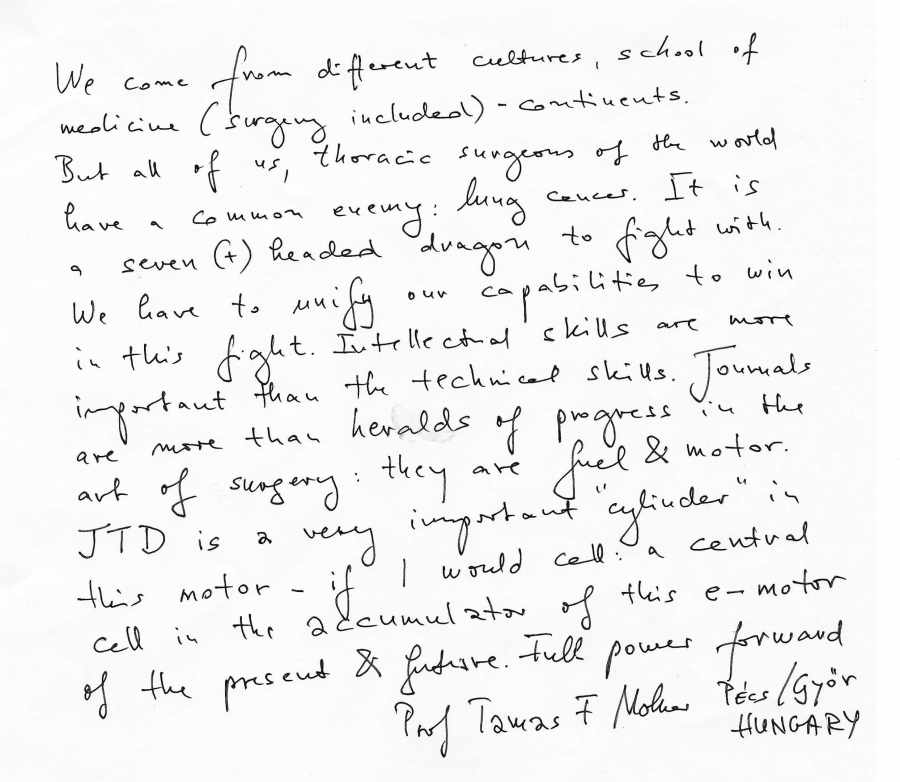 We come from different cultures, school of
medicine (surgery included) - continents.
But all of us, thoracic surgeons of the world
have a common enemy: lung cancer. It is
a seven (+) headed dragon to fight with.
We have to unify our capabilities to win
in this fight. Intellectual skills are more
important than the technical skills. Journals
are more than heralds of progress in the
art of surgery: they are fuel & motor.
JTD is a very important "cylinder" in
this motor - if I would call: a central
cell in the accumulator of this e-motor
of the present & future. Full power forward
Prof Tamas F Molnar Pécs/Győr
HUNGARY